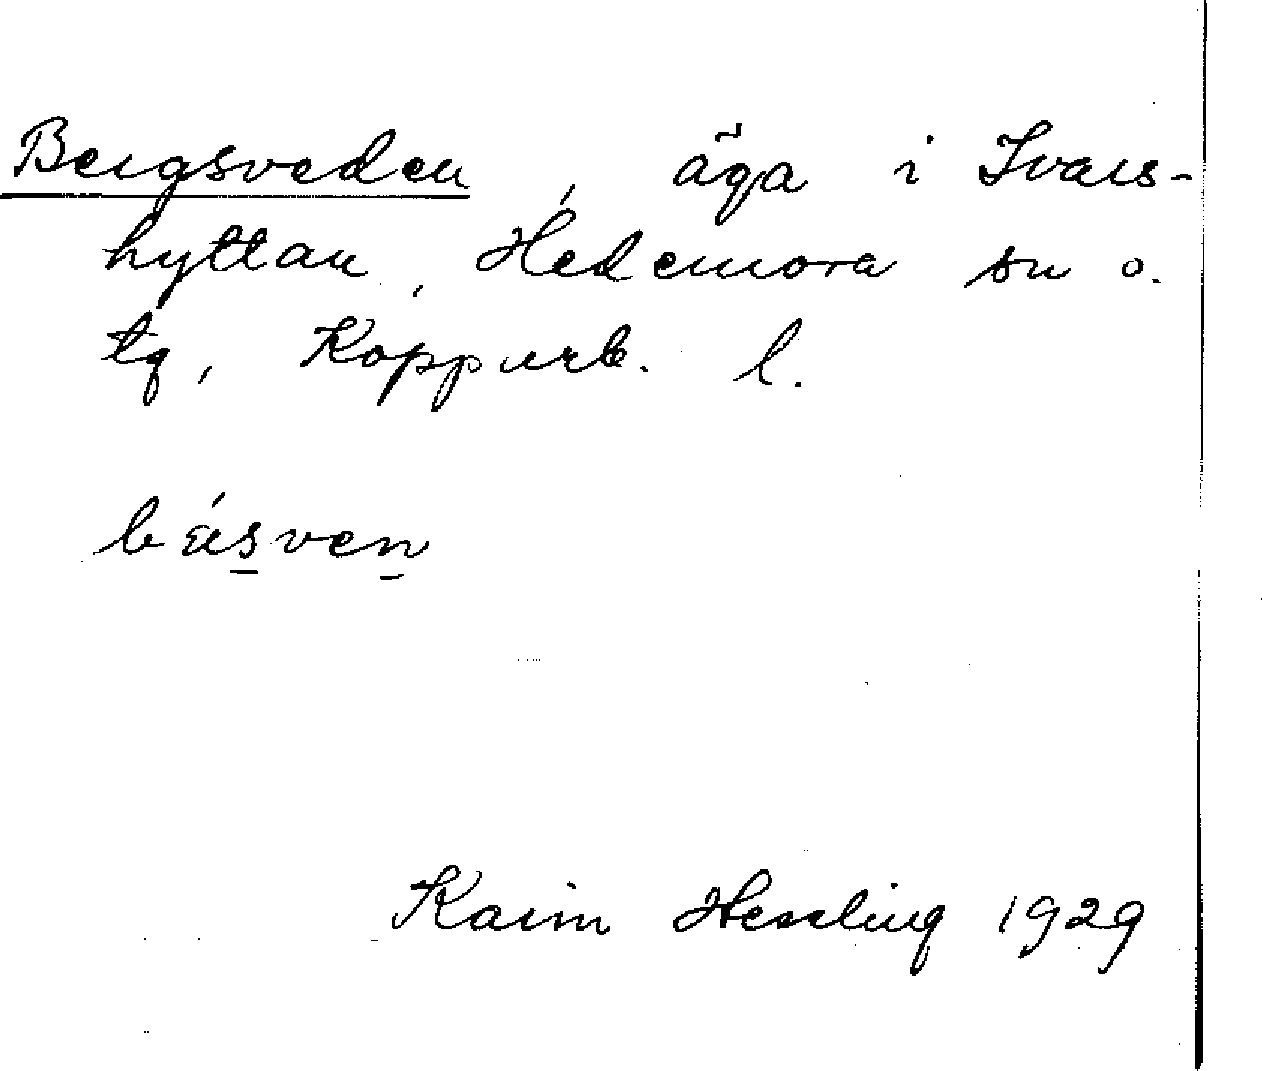 Bergsveden, äga i Ivars-
hyttan, Hedemora sn o.
tg, Kopparb. l.
bä́sven
Karin Hessling 1929